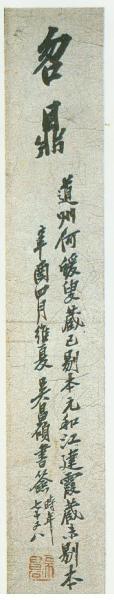 曶鼎
道州何蝯叟藏已剔本元和江建霞藏未剔本
辛酉四月維夏吳昌碩書籤時年
七十又八